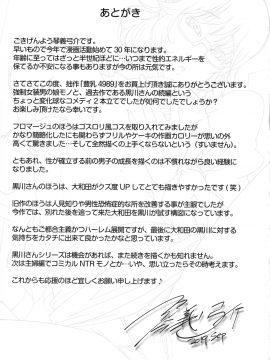 あとがき
ごきげんよう琴義弓介です。
早いもので今年で漫画活動始めて30年になります。
年齢的にはざっと半世紀ほどに…いつまで性的エネルギーを
保てるか不安になる事もありますが今の所は元気です。
さてさてこの度、拙作「豊乳4989」をお買上げ頂き誠にありがとうございます。
強制女装男の娘モノと、過去作である黒川さんの続編という
ちょっと変化球なコメディ2本立てでしたが如何でしたでしょうか？
お楽しみ頂けたなら幸いです。
フロマージュのほうはゴスロリ風コスを取り入れてみましたが
かなり簡略化したにも関わらずフリルやケーキの作画カロリーが思いの外
高くて驚きました…そして全然描くの上手くならないという（すいません）。
ともあれ、性が確立する前の男子の成長を描くのは不慣れながら良い経験に
なりました。
黒川さんのほうは、大和田がクズ度UPしてとても描きやすかったです(笑)
旧作のほうは人見知りや男性恐怖症的な所を改善する事が主眼でしたが
今作では、別れた後を追って来た大和田を黒川が試す構図になっています。
なんともご都合主義かつハーレム展開ですが、最後に大和田の黒川に対する
気持ちをカタチに出来て良かったかなと思っています。
黒川さんシリーズは機会があれば、また続きを描くかも知れません。
次は主婦編でコミカルNTRモノとか…いや、思い立ったらその時考えます。
これからも応援のほど宜しくお願い申し上げます♪